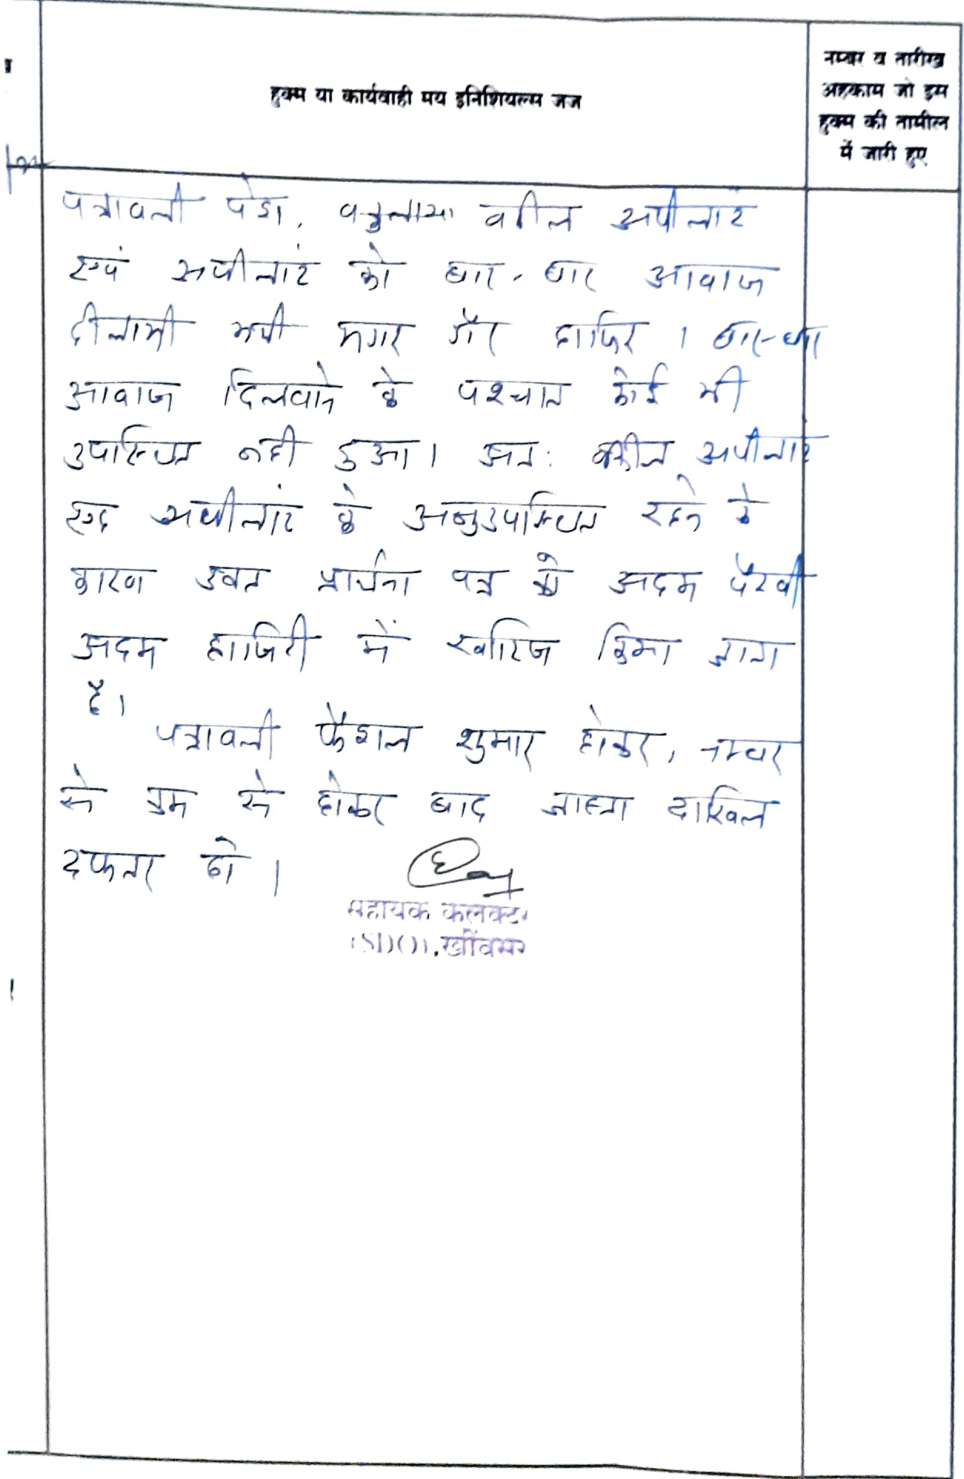 हुक्म या कार्यवाही मय इनिशियल्स जज
नम्बर व तारीख
अहकाम जो इस
हुक्म की तामील
में जारी हुए
पत्रावली पेश, वकील अपीलांट
एवं अपीलांट को बार-बार आवाज
दीलायी गयी मगर गैर हाजिर । बार-बार
आवाज दिलवाने के पश्चात कोई भी
उपस्थित नही हुआ। अतः वकील अपीलांट
एवं अपीलांट के अनुउपस्थित रहने के
कारण उक्त प्रार्थना पत्र को अदम पैरवी
अदम हाजिरी में खारिज किया जाता
है।
पत्रावली फैशल शुमार होकर, नम्बर
से कम से होकर बाद जाब्ता दाखिल
दफ्तर हो ।
सहायक कलक्टर
(SDO), खींवसर